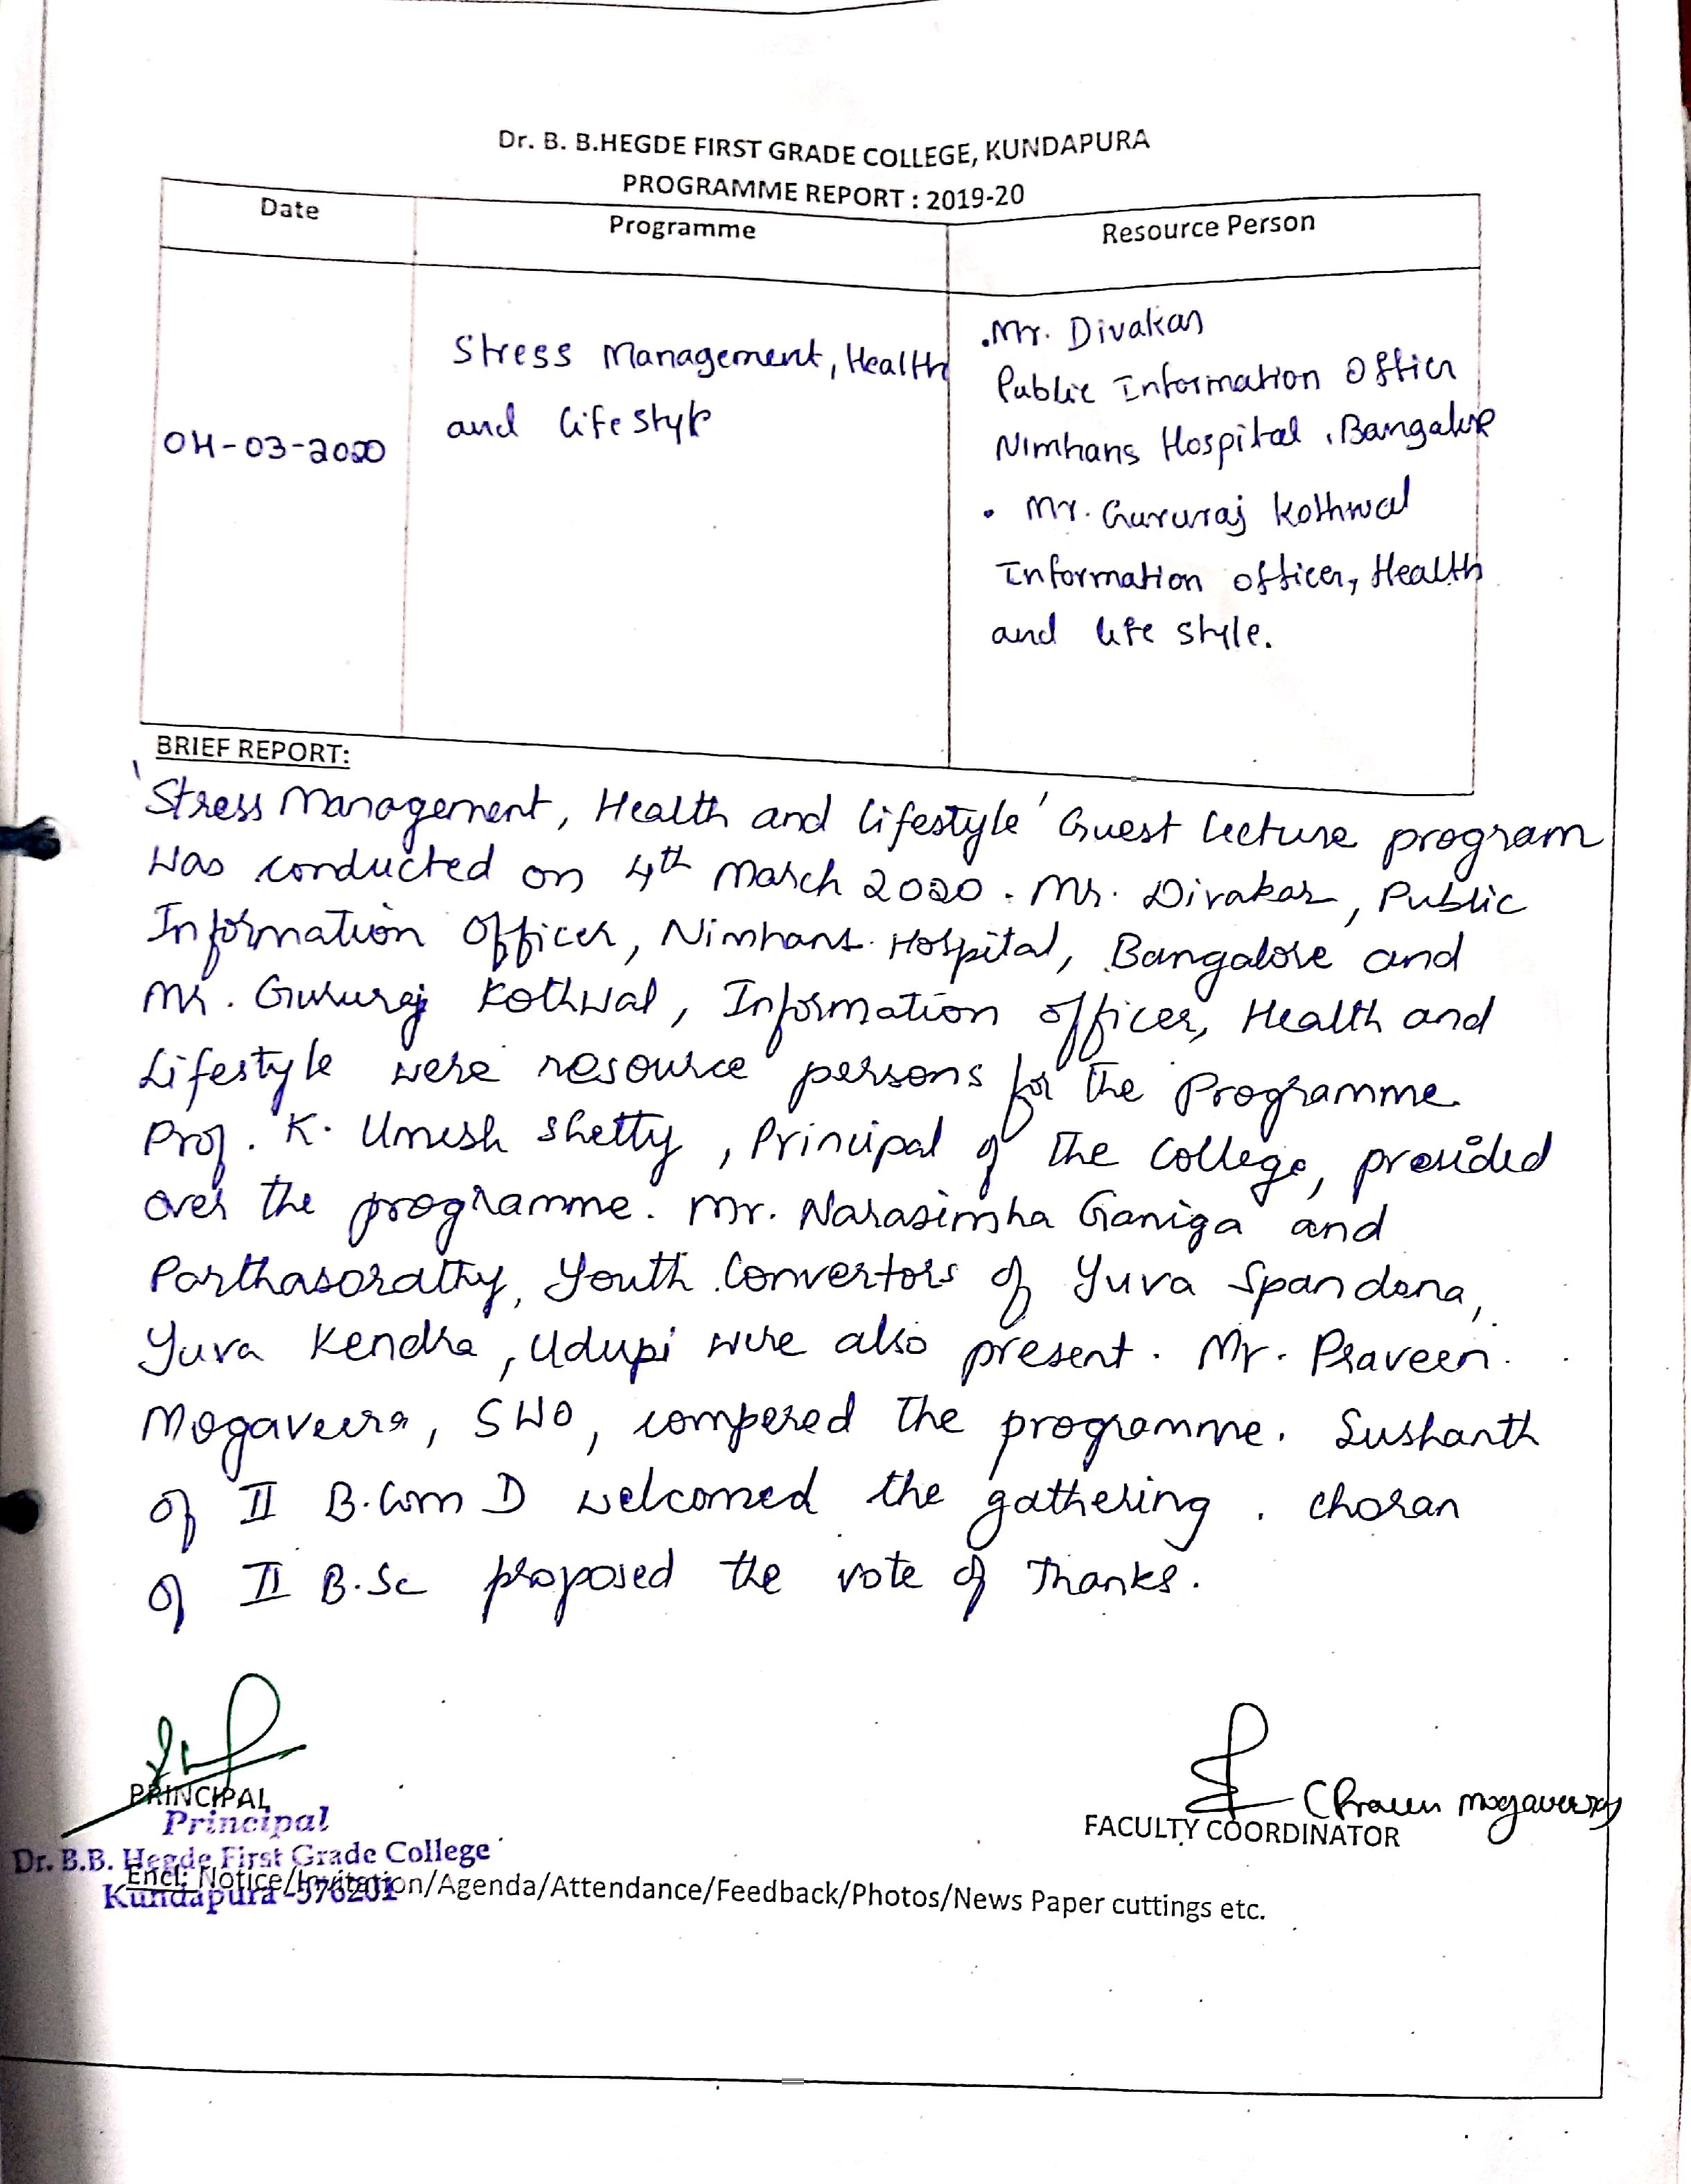 Dr. B. B.HEGDE FIRST GRADE COLLEGE, KUNDAPURA
PROGRAMME REPORT : 2019-20
Date
Programme
Resource Person
04-03-2020
Stress Management, Health
and life style
.Mr. Divakar
Public Information Officer
Nimhans Hospital, Bangalore
• Mr. Gururaj Kothwal
Information officer, Health
and life style.
BRIEF REPORT:
'Stress Management, Health and Lifestyle' Guest lecture program
was conducted on 4th March 2020. Mr. Divakar, Public
Information Officer, Nimhans Hospital, Bangalore and
Mr. Gururaj Kothwal, Information officer, Health and
Lifestyle were resource persons for the Programme.
Prof. K. Umesh Shetty, Principal of the College, presided
over the programme. Mr. Narasimha Ganiga and
Parthasarathy, Youth Convertors of Yuva Spandana,
Yuva Kendra, Udupi were also present. Mr. Praveen
Mogaveera, SWO, compered the programme. Sushanth
of II B.Com D welcomed the gathering. Charan
of II B.Sc proposed the vote of Thanks.
PRINCIPAL
Principal
Dr. B.B. Hegde First Grade College
Kundapura - 576201
(Praveen Mogaveera)
FACULTY COORDINATOR
Encl: Notice/Invitation/Agenda/Attendance/Feedback/Photos/News Paper cuttings etc.